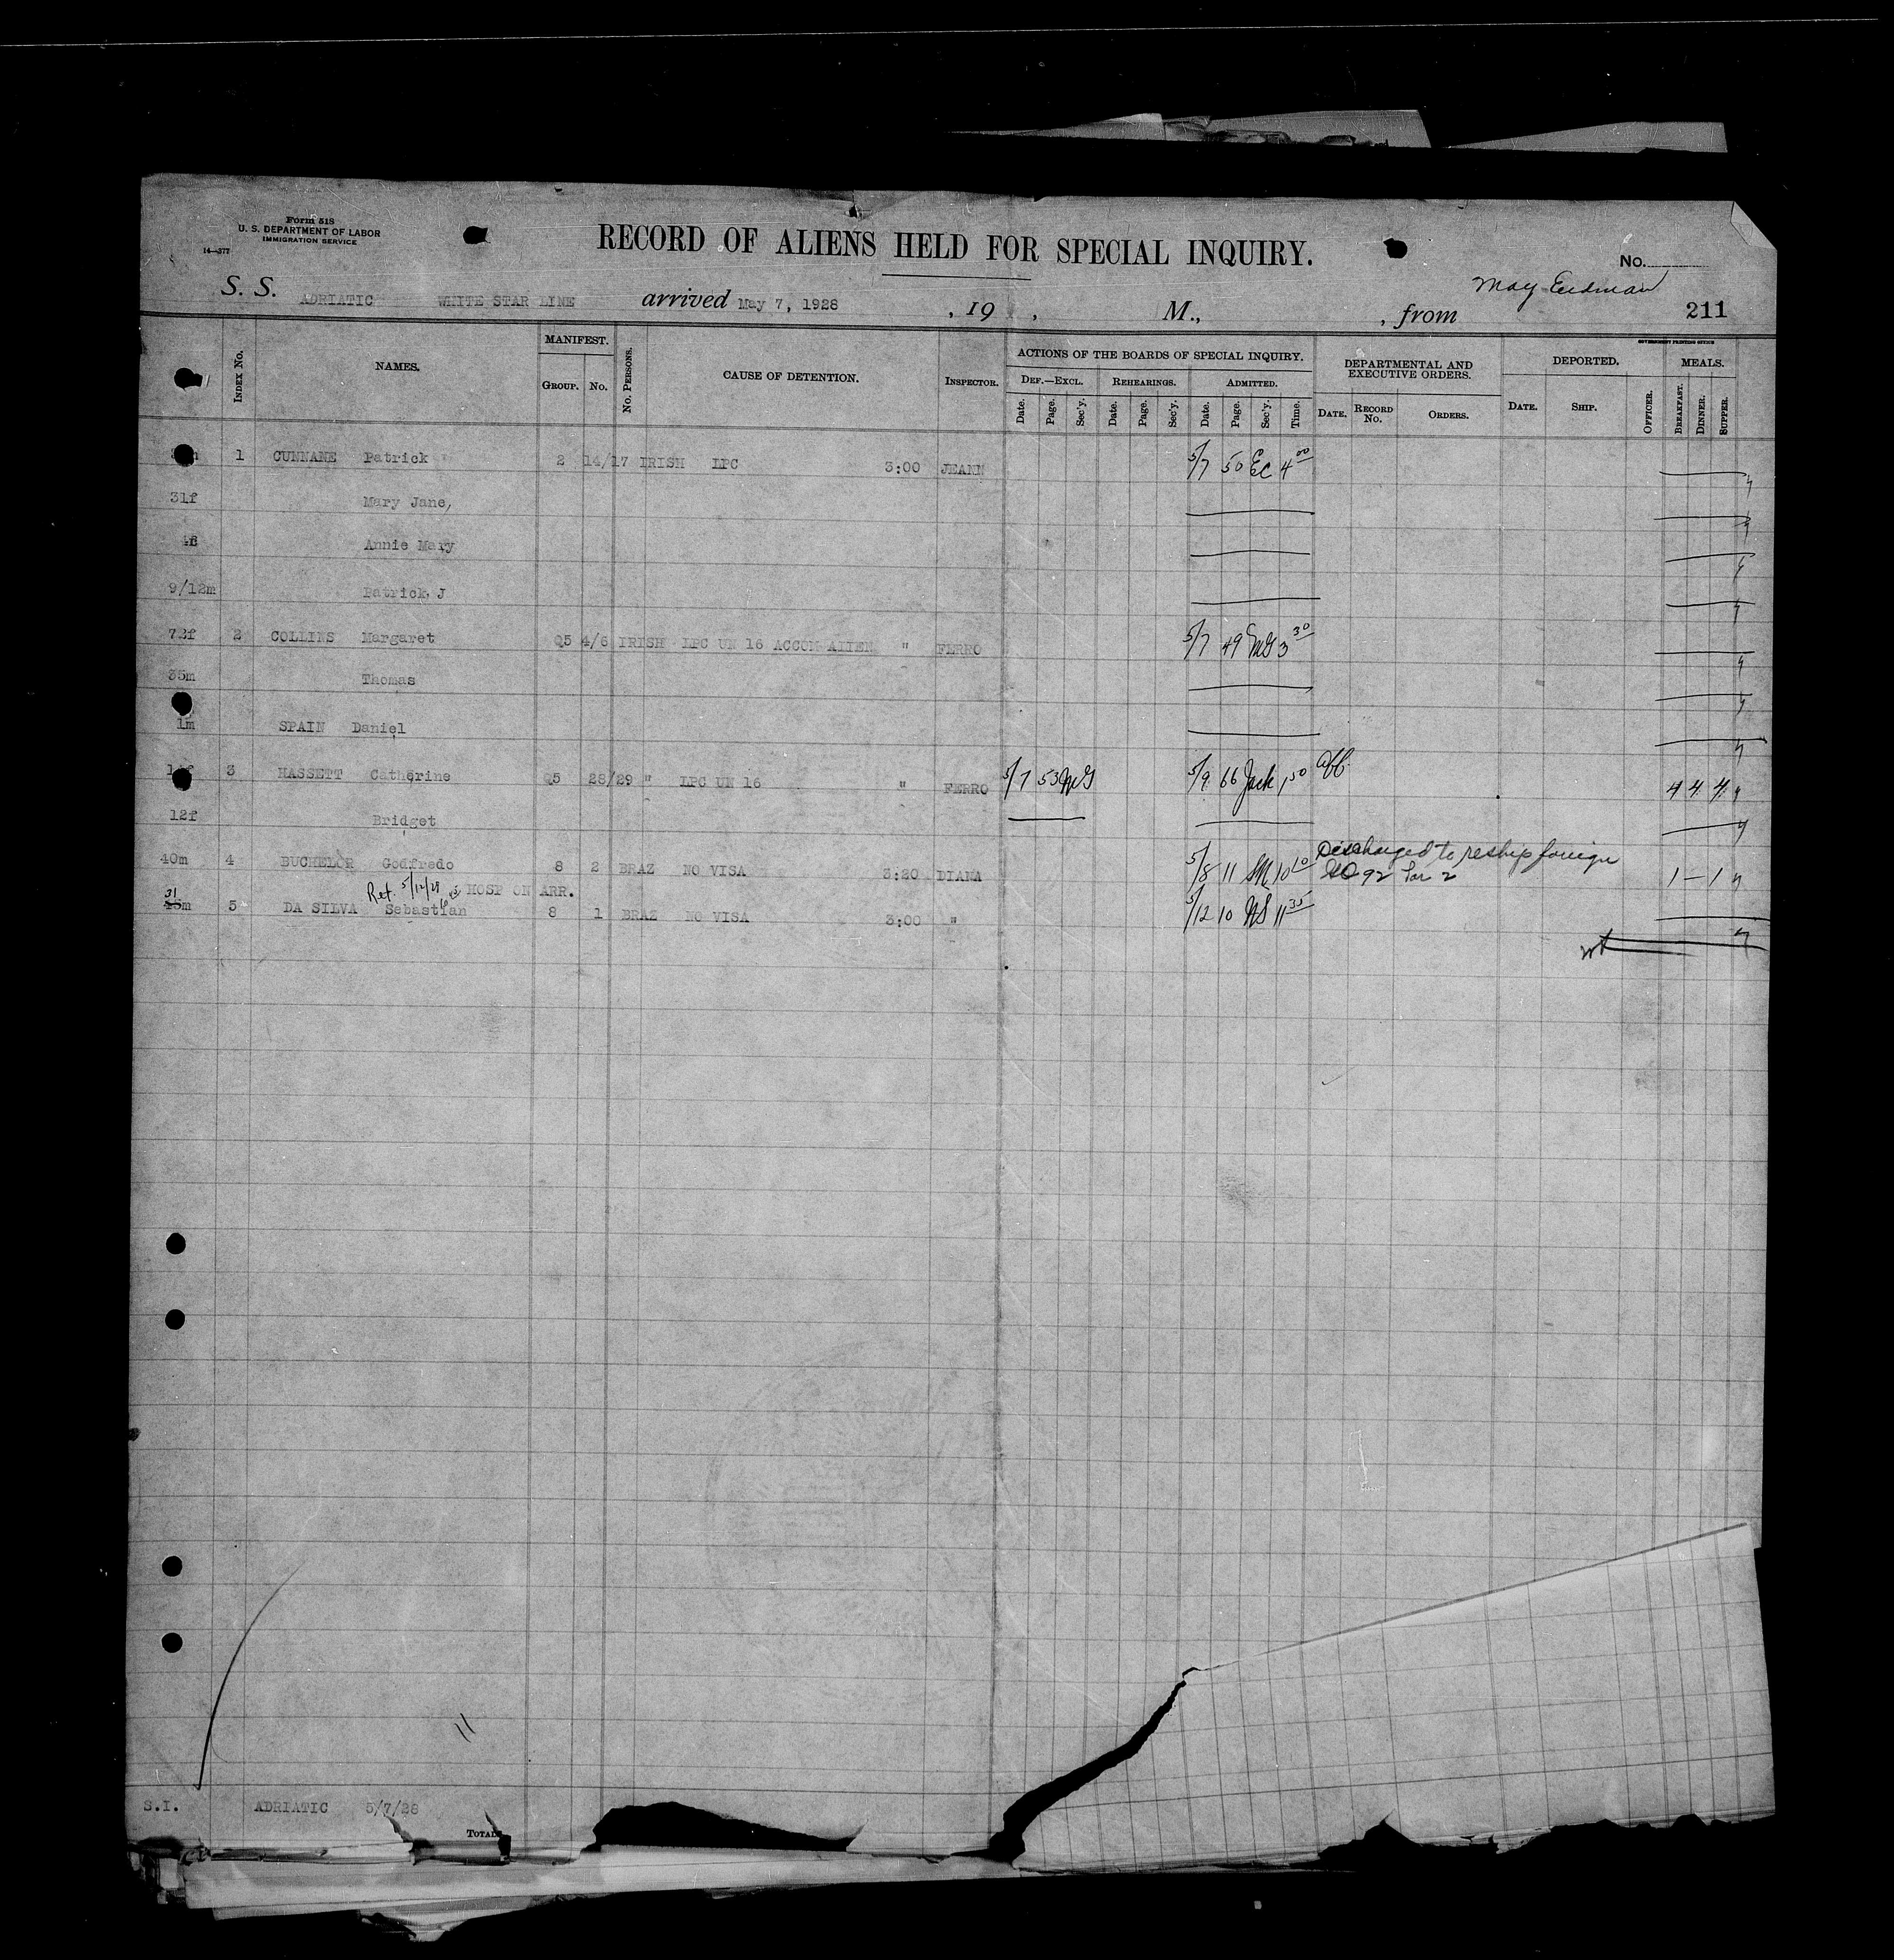 Form 518
U. S. DEPARTMENT OF LABOR
IMMIGRATION SERVICE
14—377
RECORD OF ALIENS HELD FOR SPECIAL INQUIRY.
No.
S. S. ADRIATIC WHITE STAR LINE arrived May 7, 1928 , 19 , M., , from
May
211
GOVERNMENT PRINTING OFFICE
INDEX No. NAMES. MANIFEST. GROUP. No. No. PERSONS. CAUSE OF DETENTION. INSPECTOR. ACTIONS OF THE BOARDS OF SPECIAL INQUIRY. DEPARTMENTAL AND EXECUTIVE ORDERS. DEPORTED. MEALS.
DEF.—EXCL. REHEARINGS. ADMITTED.
Date. Page. Sec'y. Date. Page. Sec'y. Date. Page. Sec'y. Time. DATE. RECORD No. ORDERS. DATE. SHIP. OFFICER. BREAKFAST. DINNER. SUPPER.
1 CUNNANE Patrick 2 14/17 IRISH LPC 3:00 JEANN 5/7 50 EC 4 00
31f Mary Jane,
Annie Mary
9/12m Patrick J
73f 2 COLLINS Margaret Q5 4/6 IRISH LPC UN 16 ACCOM ALIEN " FERRO 5/7 49 3 30
35m Thomas
1m SPAIN Daniel
3 HASSETT Catherine Q5 28/29 " LPC UN 16 " FERRO 5/7 53 5/9 66 Jack 1 50 4 4 4
12f Bridget
40m 4 BUCHELOR Godfredo 8 2 BRAZ NO VISA 3:20 DIANA 5/8 11 SM 10 10 Discharged to reship foreign
GO 92 Par 2 1 — 1
Ret. 5/12/28 HOSP ON ARR.
31
45m 5 DA SILVA Sebastian 8 1 BRAZ NO VISA 3:00 " 5/12 10 11 35
11
S.I. ADRIATIC 5/7/28
TOTAL